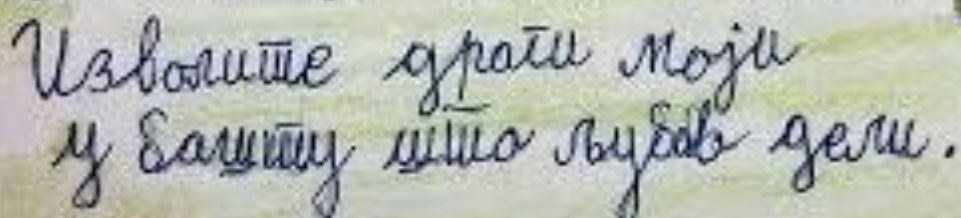 Изволите драги моји
у башту што љубав дели.